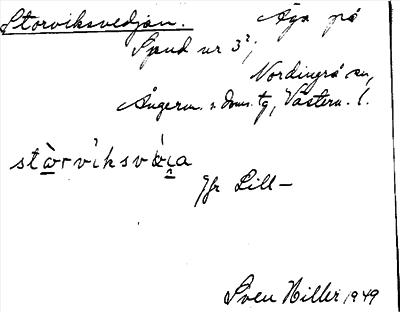 Storviksvedjan. Äga på
Spud nr 3²,
Nordingrå sn,
Ångerm. s. doms. tg, Västern. l.
stɷ̀rvìksvɷ̀i̯a
Jfr Lill–
Sven Hiller 1949